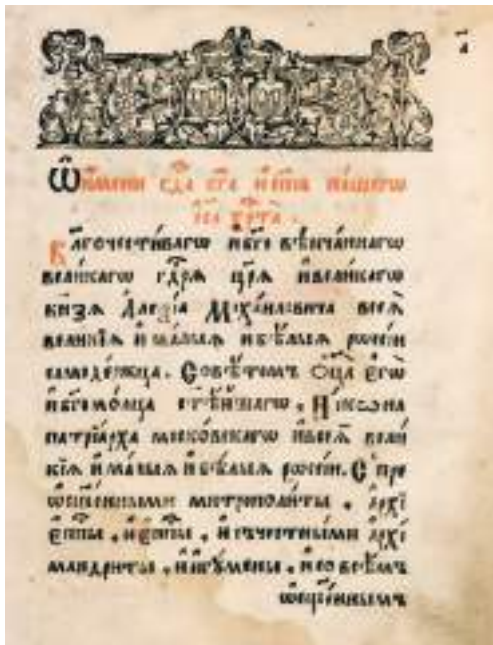 Ѿ и҆мени гдⷭ҇а бг҃а и҆ сп҃са на́шегѡ
і҆и҃са хрⷭ҇та̀ .
Бл҃гочести́вагѡ и҆ бг҃овѣнча́ннагѡ
вели́кагѡ гдⷭ҇рѧ цр҃ѧ̀ и҆ вели́кагѡ
кнѧ́зѧ А҆леѯі́а Миха́иловича всеѧ̀
вели́кїѧ и҆ ма́лыѧ и҆ бѣ́лыѧ рѡсі́и
самоде́ржца . Совѣ́томъ ѻ҆ц҃а̀ є҆гѡ̀
и҆ бг҃омо́лца ст҃ѣ́йшагѡ , Ни́кѡна
патрїа́рха моско́вскагѡ и҆ всеѧ̀ вели́
кїѧ и҆ ма́лыѧ и҆ бѣ́лыѧ рѡсі́и . С̾ пре
ѡ҆сщ҃е́нными митрополи́ты , а҆рхї
є҆пⷭ҇пы , и҆ є҆пⷭ҇пы , и҆ съ честны́ми а҆рхї
мандри́ты , и҆ и҆гꙋ́мены , и҆ со всѣ́мъ
ѡ҆сщ҃е́ннымъ